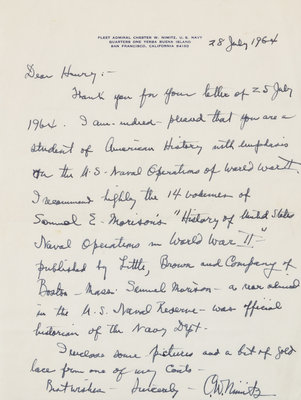 FLEET ADMIRAL CHESTER W. NIMITZ, U. S. NAVY
QUARTERS ONE YERBA BUENA ISLAND
SAN FRANCISCO, CALIFORNIA 94130
28 July 1964
Dear Henry:-
Thank you for your letter of 25 July
1964. I am indeed pleased that you are a
student of American History with emphasis
on the U.S. Naval Operations of World War II
I recommend highly the 14 volumes of
Samuel E. Morison's "History of United States
Naval Operations in World War II"-
published by Little, Brown and Company of
Boston - Mass. Samuel Morison - a rear admiral
in the U.S. Naval Reserve - was official
historian of the Navy Dept.
I enclose some pictures and a bit of gold
lace from one of my Coats -
Best wishes - Sincerely - C.W. Nimitz